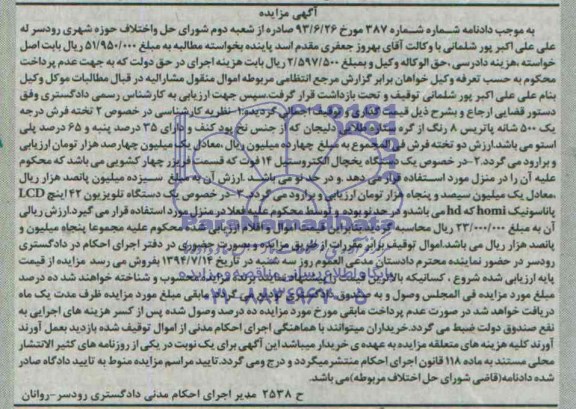 آگهی مزایده
به موجب دادنامه شماره شماره ۳۸۷ مورخ ۹۳/۶/۲۶ صادره از شعبه دوم شورای حل واختلاف حوزه شهری رودسر له
علی علی اکبر پور شلمانی با وکالت آقای بهروز جعفری مقدم اسد پاینده بخواسته مطالبه به مبلغ ۵۱/۹۵۰/۰۰۰ ریال بابت اصل
خواسته ،هزینه دادرسی ،حق الوکاله وکیل و بمبلغ ۲/۵۹۷/۵۰۰ ریال بابت هزینه اجرای در حق دولت که به جهت عدم پرداخت
محکوم به حسب تعرفه وکیل خواهان برابر گزارش مرجع انتظامی مربوطه اموال منقول مشارالیه در قبال مطالبات موکل وکیل
بنام علی علی اکبر پور شلمانی توقیف و تحت بازداشت قرار گرفت.سپس جهت ارزیابی به کارشناس رسمی دادگستری وفق
دستور قضایی ارجاع و بشرح ذیل قیمت گذاری و توقیف اجمالی گردیده:۱- نظریه کارشناسی در خصوص ۲ تخته فرش درجه
یک ۵۰۰ شانه پاتریس ۸ رنگ از گره ستاره طلایی دلیجان که از جنس نخ پود کنف و دارای ۳۵ درصد پنبه و ۶۵ درصد پلی
استو می باشد.ارزش دو تخته فرش فرالمجموع به مبلغ چهارده میلیون ریال ،معادل یک میلیون چهارصد هزار تومان ارزیابی
و برآورد می گردد.۲-در خصوص یک دستگاه یخچال الکترواستیل ۱۴ فوت که قسمت فریزر چهار کشویی می باشد که محکوم
علیه آن را در منزل مورد استفاده قرار می دهد .و در حد نو می باشد .ارزش آن به مبلغ سیزده میلیون پانصد هزار ریال
،معادل یک میلیون سیصد و پنجاه هزار تومان ارزیابی و برآورد می گردد.۳-در خصوص یک دستگاه تلویزیون ۴۲ اینچ LCD
پاناسونیک homi که hd می باشدو در حد نو بوده و توسط محکوم علیه فعلا در منزل مورد استفاده قرار می گیرد.ارزش ریالی
آن به مبلغ ۲۳/۰۰۰/۰۰۰ ریال محاسبه گردید اموال و اقلام ارزیابی شده محکوم علیه مجموعا پنجاه میلیون و
پانصد هزار ریال می باشد.اموال توقیف برابر مقررات از طریق مزایده و بصورت حضوری در دفتر اجرای احکام در دادگستری
رودسر در حضور نماینده محترم دادستان مدعی العموم روز سه شنبه در تاریخ ۱۳۹۴/۷/۱۴ بفروش می رسد مزایده از قیمت
پایه ارزیابی شده شروع ، کسانیکه بالاترین قیمت را پیشنهاد برنده مزایده محسوب و شناخته خواهند شد ده درصد
مبلغ مورد مزایده فی المجلس وصول و به صندوق دادگستری می گردد مابقی مبلغ مورد مزایده ظرف مدت یک ماه
دریافت خواهد شد در صورت عدم پرداخت مابقی مورخ مورد مزایده ده درصد وصول شده پس از کسر هزینه های اجرایی به
نفع صندوق دولت ضبط می گردد.خریداران میتوانند با هماهنگی اجرای احکام مدنی از اموال توقیف شده بازدید بعمل آورند
آورند کلیه هزینه های متعلقه مزایده به عهده ی خریدار میباشد این آگهی برای یک نوبت در یکی از روزنامه های کثیر الانتشار
محلی مستند به ماده ۱۱۸ قانون اجرای احکام منتشر میگردد و درج ومی گردد.تایید مراسم مزایده منوط به تایید دادگاه صادر
شده دادنامه(قاضی شورای حل اختلاف مربوطه)می باشد.
ح ۲۵۳۸ مدیر اجرای احکام مدنی دادگستری رودسر-روانان